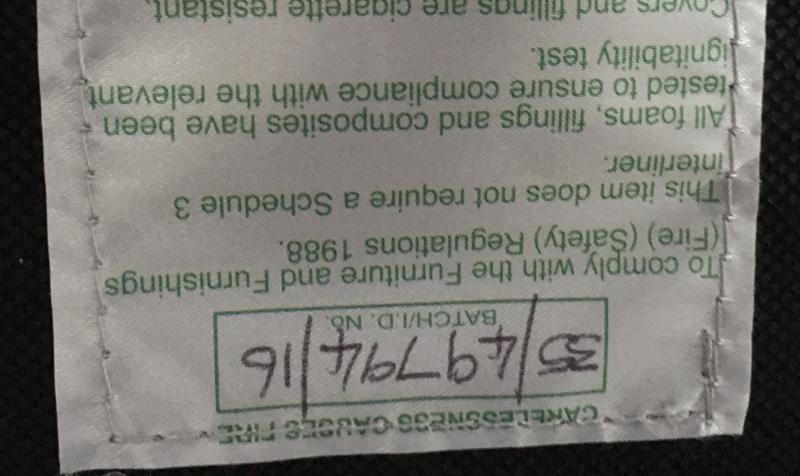 CARELESSNESS CAUSES FIRE
35/49794/16
BATCH/I.D. No.
To comply with the Furniture and Furnishings
(Fire) (Safety) Regulations 1988.
This item does not require a Schedule 3
interliner.
All foams, fillings and composites have been
tested to ensure compliance with the relevant
ignitability test.
Covers and fillings are cigarette resistant.